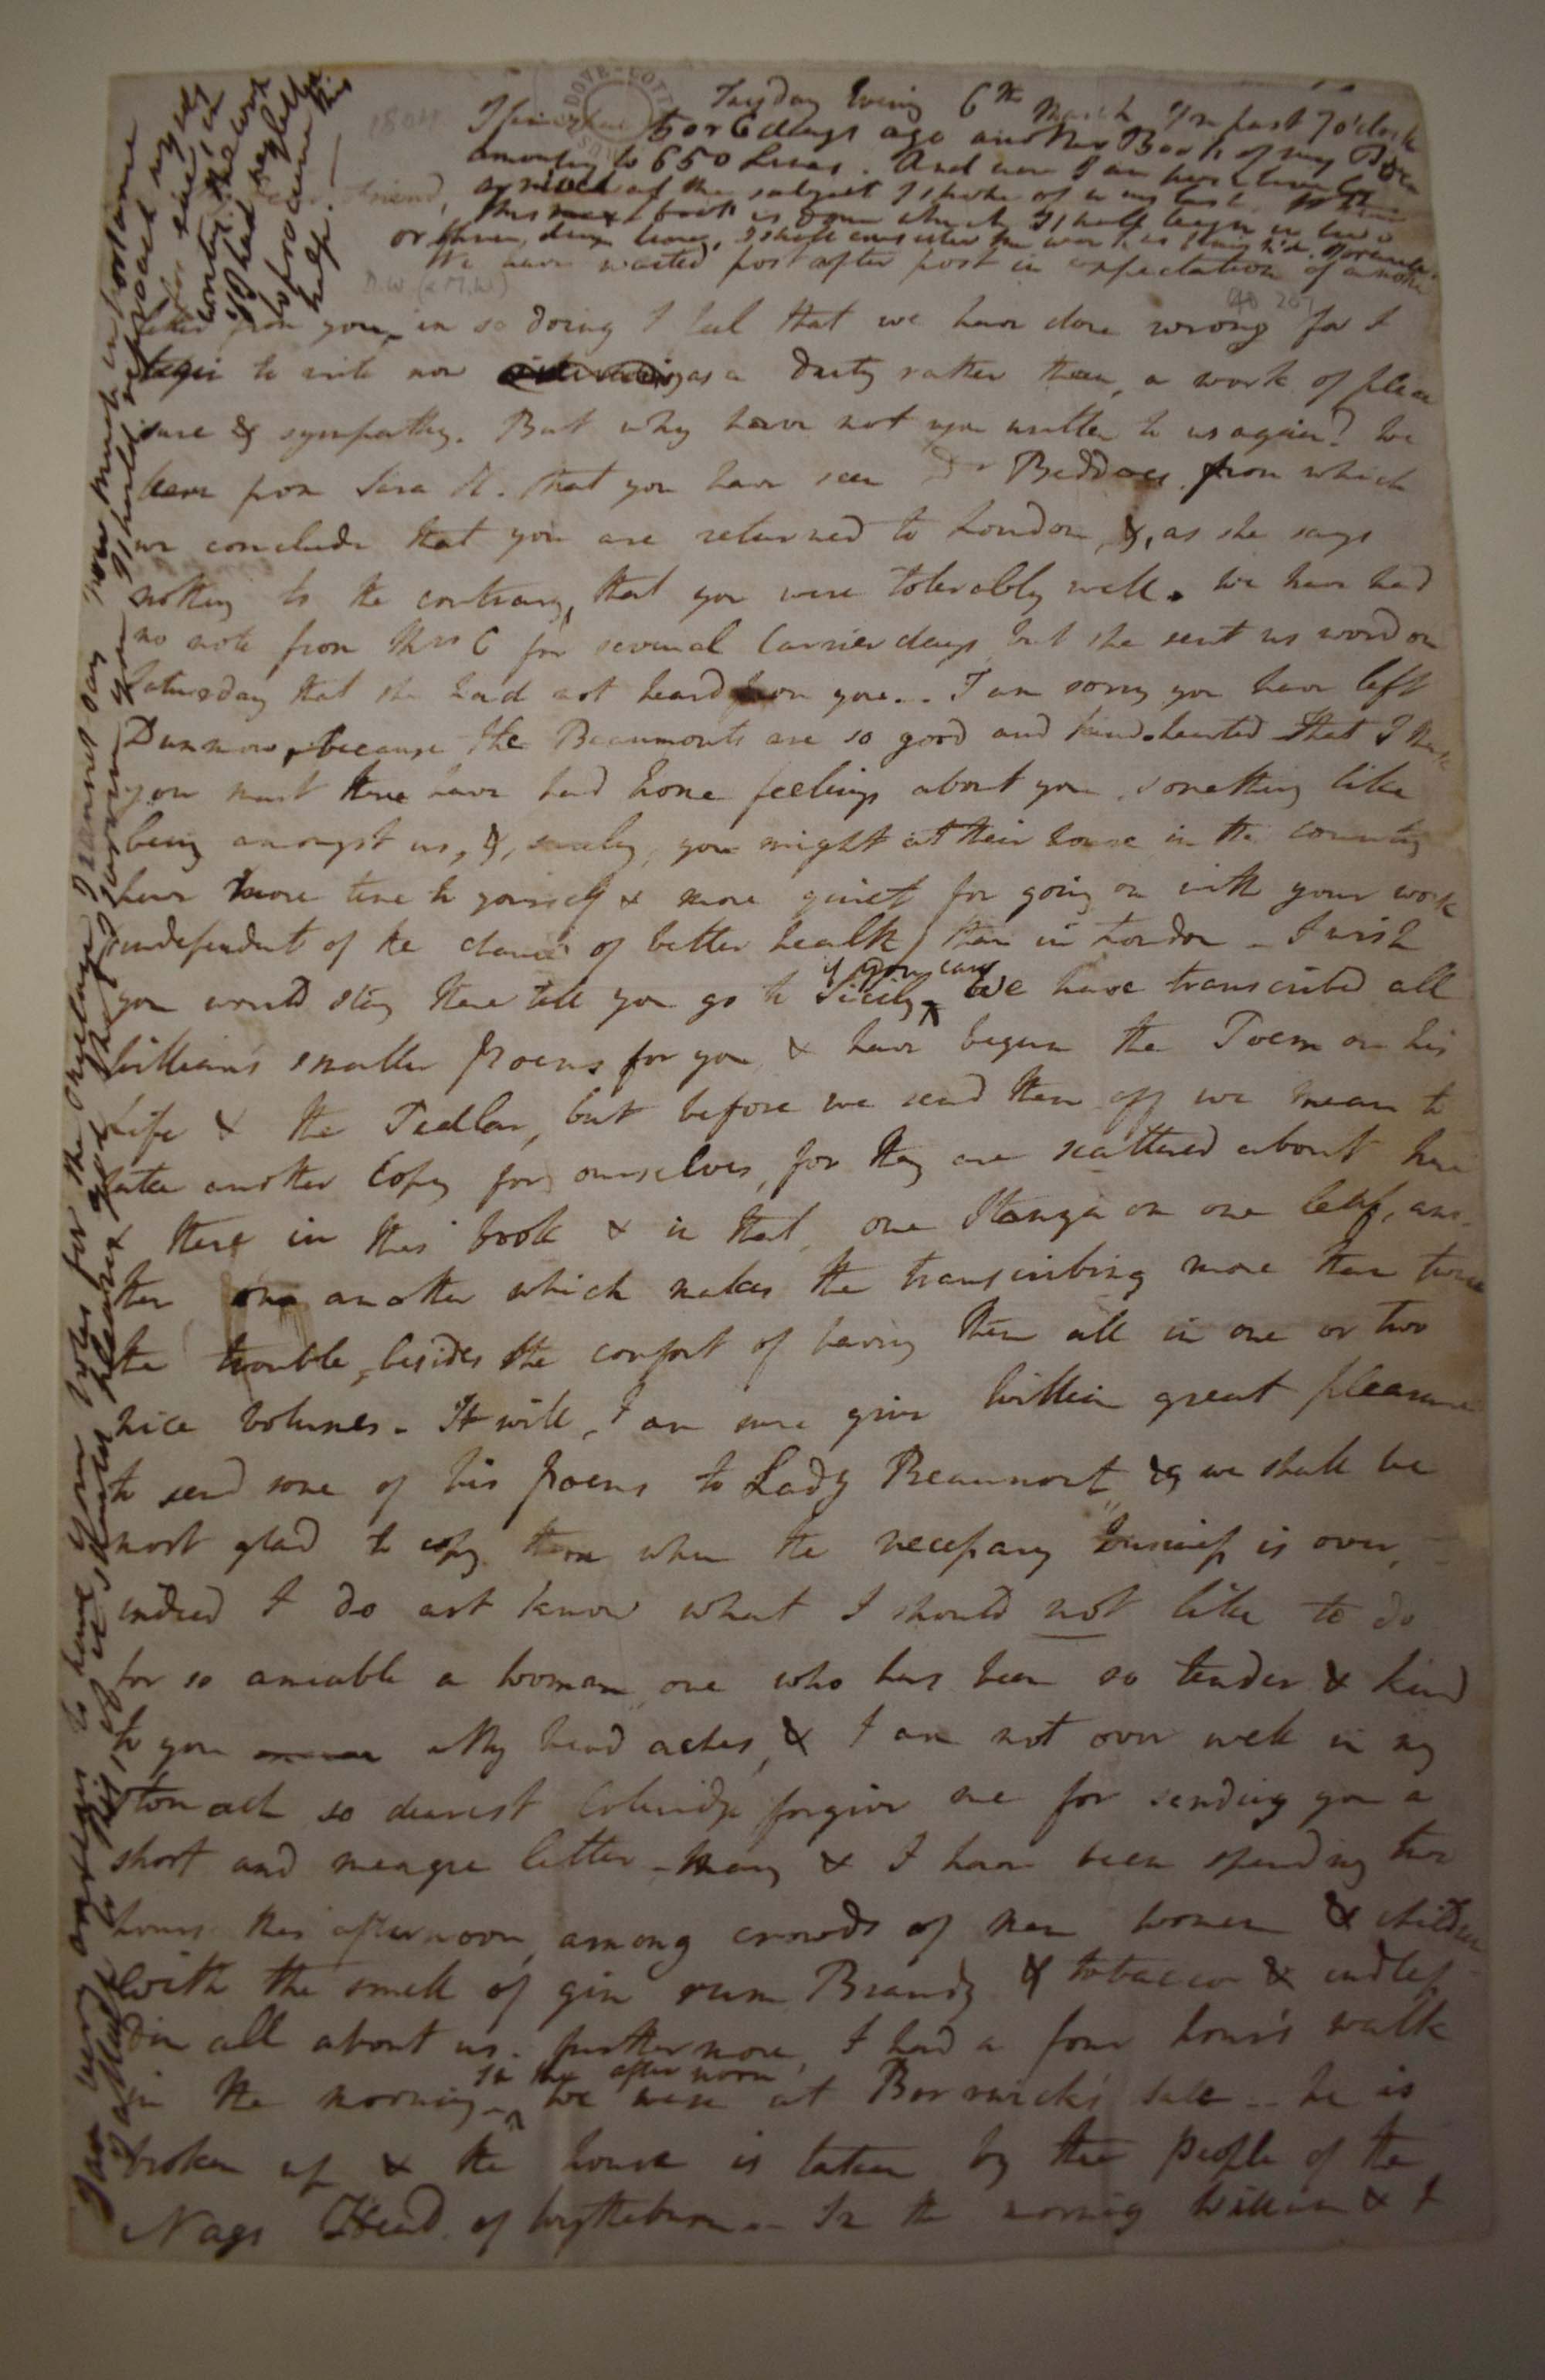 DOVE COTT
1804
Tuesday Evening 6th March 1/2 past 7 o'clock
I finished 5 or 6 days ago another Book of my Poem
amounting to 650 Lines. And now I am
of the subject I spoke of in my last
this next book is done which I shall begin in two
or three days time, I shall consider the work as
Friend,
We have waited post after post in expectation of another
D.W. (& M.W.)
letter from you, in so doing I feel that we have done wrong for I
begin to write now as a Duty rather than a work of plea
sure & sympathy. But why have not you written to us again? We
hear from Sara H. that you have seen Dr Beddoes from which
we conclude that you are returned to London, &, as she says
nothing to the contrary, that you were tolerably well. We have had
no note from Mrs C for several Carrier days but she sent us word on
Saturday that she had not heard from you.. I am sorry you have left
Dunmow, because the Beaumonts are so good and kind-hearted that I think
you must there have had home feelings about you, something like
being amongst us, &, surely, you might at their house in the country
have more time to yourself & more quiet for going on with your work
independent of the chance of better health) than in London - I wish
if you can
you would stay there till you go to Sicily ^ We have transcribed all
William's smaller Poems for you, & have begun the Poem on his
Life & the Pedlar, but before we send them off we mean to
take another Copy for ourselves, for they are scattered about here
& there in this book & in that, one Stanza on one leaf, ano-
ther on another which makes the transcribing more than twice
the trouble, besides the comfort of having them all in one or two
nice volumes. It will, I am sure give William great pleasure
to send some of his poems to Lady Beaumont, & we shall be
most glad to copy them when the necessary business is over,
indeed I do not know what I should not like to do
for so amiable a woman, one who has been so tender & kind
to you My head aches, & I am not over well in my
stomach so dearest Coleridge forgive me for sending you a
short and meagre letter - Mary & I have been spending two
hours this afternoon, among crowds of men women & children
with the smell of gin rum Brandy & tobacco & endless
din all about us. furthermore, I had a four hours walk
In the afternoon
in the morning - ^ We were at Borwick's Sale - he is
broken up & the house is taken by the people of the
Nags Head of Wytheburn - In the morning William & I
I am very anxious to have your notes for the Recluse. I cannot say how much importance
I attach to this, if it should please God that I survive you, I should reproach myself
for ever in
writing the work
if I had neglected
to procure this
help.